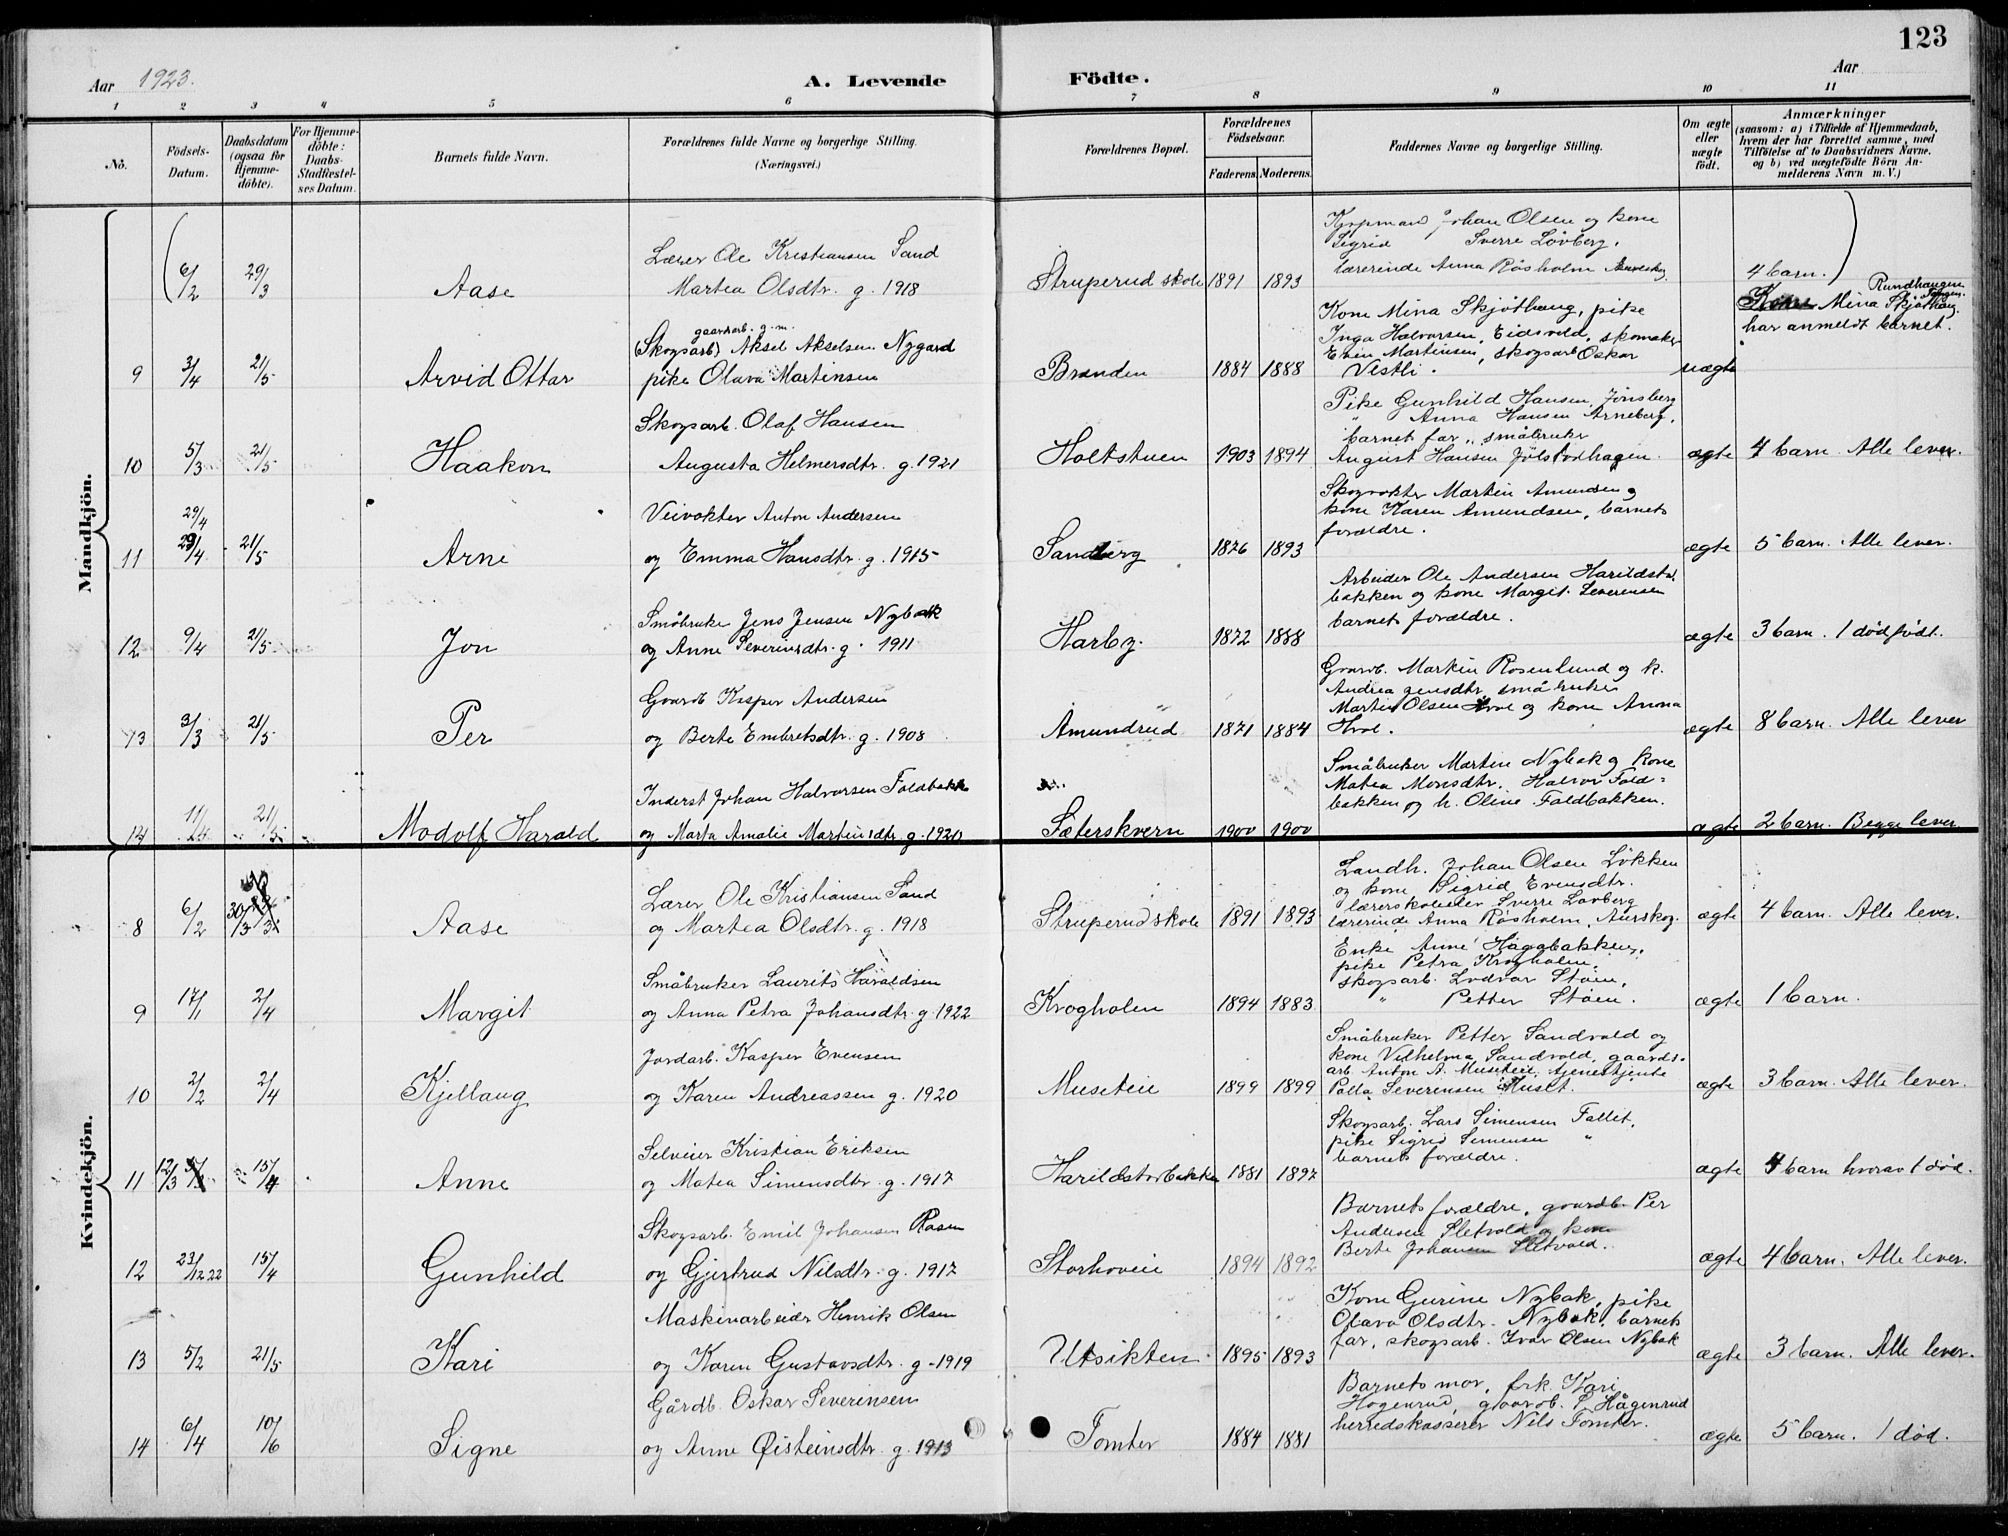 123
Aar 1923.
A. Levende Födte.
Aar
1 2 3 4 5 6 7 8 9 10 11
No.
Födsels-Datum.
Daabsdatum (ogsaa for Hjemme-döbte).
For Hjemme-döbte: Daabs-Stadfæstel-ses Datum.
Barnets fulde Navn.
Forældrenes fulde Navne og borgerlige Stilling. (Næringsvei.)
Forældrenes Bopæl.
Forældrenes Födselsaar.
Faderens. Moderens.
Faddernes Navne og borgerlige Stilling.
Om ægte eller uægte födt.
Anmærkninger
(saasom: a) i Tilfælde af Hjemmedaab, hvem der har forrettet samme, med Tilföielse af to Daabsvidners Navne, og b) ved uægtefödte Börn An-melderens Navn m. V.)
Mandkjön.
(6/2 29/3 Aase
Lærer Ole Kristiansen Sand
Martea Olsdtr. g. 1918
Struperud skole 1891 1893
Kjøpmand Johan Olsen og kone
Sigrid Sverre Lövberg,
lærerinde Anna Røsholm Aurskog
4 barn.)
9 3/4 21/5 Arvid Ottar
gaardarb. g.m.
(Skogsarb) Aksel Akselsen Nygard
pike Olava Martinsen
Branden 1884 1888
Kone Mina Skjöthaug, pike
Inga Halvorsen, Eidsvold, skomaker
Even Martinsen, skogsarb Oskar
Vestli.
uægte
Rundhaugen
Kone Mina Skjöthaug
har anmeldt barnet.
10 5/3 21/5 Haakon
Skogsarb. Olaf Hansen
Augusta Helmersdtr. g. 1921
Holtstuen 1903 1894
Pike Gunhild Hansen, Jönsberg
" Anna Hansen Arneberg,
barnets far, småbruker
August Hansen Jølstadhagen.
ægte 4 barn. Alle lever.
11 29/4 29/4 21/5 Arne
Veivokter Anton Andersen
og Emma Hansdtr. g. 1915
Sandberg 1876 1893
Skogvokter Martin Amundsen og
kone Karen Amundsen, barnets
forældre.
ægte 5 barn. Alle lever.
12 9/4 21/5 Jon
Småbruker Jens Jensen Nybakk
og Anne Severinsdtr. g. 1911
Harby. 1872 1888
Arbeider Ole Andersen Harildstad
bakken og kone Margit Severensen
barnets forældre.
ægte 3 barn. 1 dödfödt.
13 3/3 21/5 Per
Gaardb Kasper Andersen
og Berte Embretsdtr. g. 1908
Amundrud 1871 1884
Gaardb. Martin Rosenlund og k.
Andrea Jensdtr, småbruker
Martin Olsen Hvol og kone Anna
Hvol.
ægte 8 barn. Alle lever
14 11/4 21/5 Modolf Harald
Inderst Johan Halvorsen Foldbakk
og Marta Amalie Martinsdtr. g. 1920
Sæterskvern 1900 1900
Småbruker Martin Nybak og kone
Matea Monsdtr. Halvor Fold=
bakken og h. Oline Foldbakken.
ægte 2 barn. Begge lever
Kvindekjön.
8 6/2 30/3 Aase
Lærer Ole Kristiansen Sand
og Martea Olsdtr. g. 1918
Struperud skole 1891 1893
Landh. Johan Olsen Lökken
og kone Sigrid Evensdtr.
lærerskoleelev Sverre Lovberg
lærerinde Anna Røsholm, Aurskog.
ægte 4 barn. Alle lever.
9 17/1 2/4 Margit
Småbruker Laurits Haraldsen
og Anna Petra Johansdtr. g. 1922
Krogholen 1894 1883
Enke Anne Haggbakken,
pike Petra Krogholen,
skogsarb. Lodvar Stöen,
" Petter Stöen.
ægte 1 barn.
10 2/2 2/4 Kjellaug
Jordarb. Kasper Evensen
og Karen Andreassen g. 1920
Museteie 1899 1899
Småbruker Petter Sandvold og
kone Vilhelma Sandvold, gaards-
arb. Anton A. Museteie, tjenestjente
Palla Severensen Muset.
ægte 3 barn. Alle lever.
11 12/3 15/4 Anne
Selveier Kristian Eriksen
og Matea Simensdtr. g. 1917
Harildstadbakken 1881 1897
Skogsarb. Lars Simensen Fallet,
pike Sigrid Simensen "
barnets forældre.
ægte 4 barn hvorav 1 död.
12 23/12 22 15/4 Gunhild
Skogsarb. Emil Johansen Rasen
og Gjertrud Nilsdtr. g. 1917
Storhoveie 1894 1892
Barnets forældre, gaardb. Per
Andersen Sletvold og kone
Berte Johansen Sletvold.
ægte 4 barn. Alle lever.
13 5/2 21/5 Kari
Maskinarbeider Henrik Olsen
og Karen Gustavsdtr. g. 1919
Utsikten 1895 1893
Kone Gurine Nybak, pike
Olava Olsdtr. Nybak, barnets
far, skogsarb. Ivar Olsen Nybak
ægte 3 barn. Alle lever.
14 6/4 10/6 Signe
Gårdb. Oskar Severensen
og Anne Øisteinsdtr. g. 1913
Tomter 1884 1881
Barnets mor, frk. Kari
Hogenrud, gaardb. P Hågenrud
herredskasserer Nils Tomter.
ægte 5 barn. 1 död.